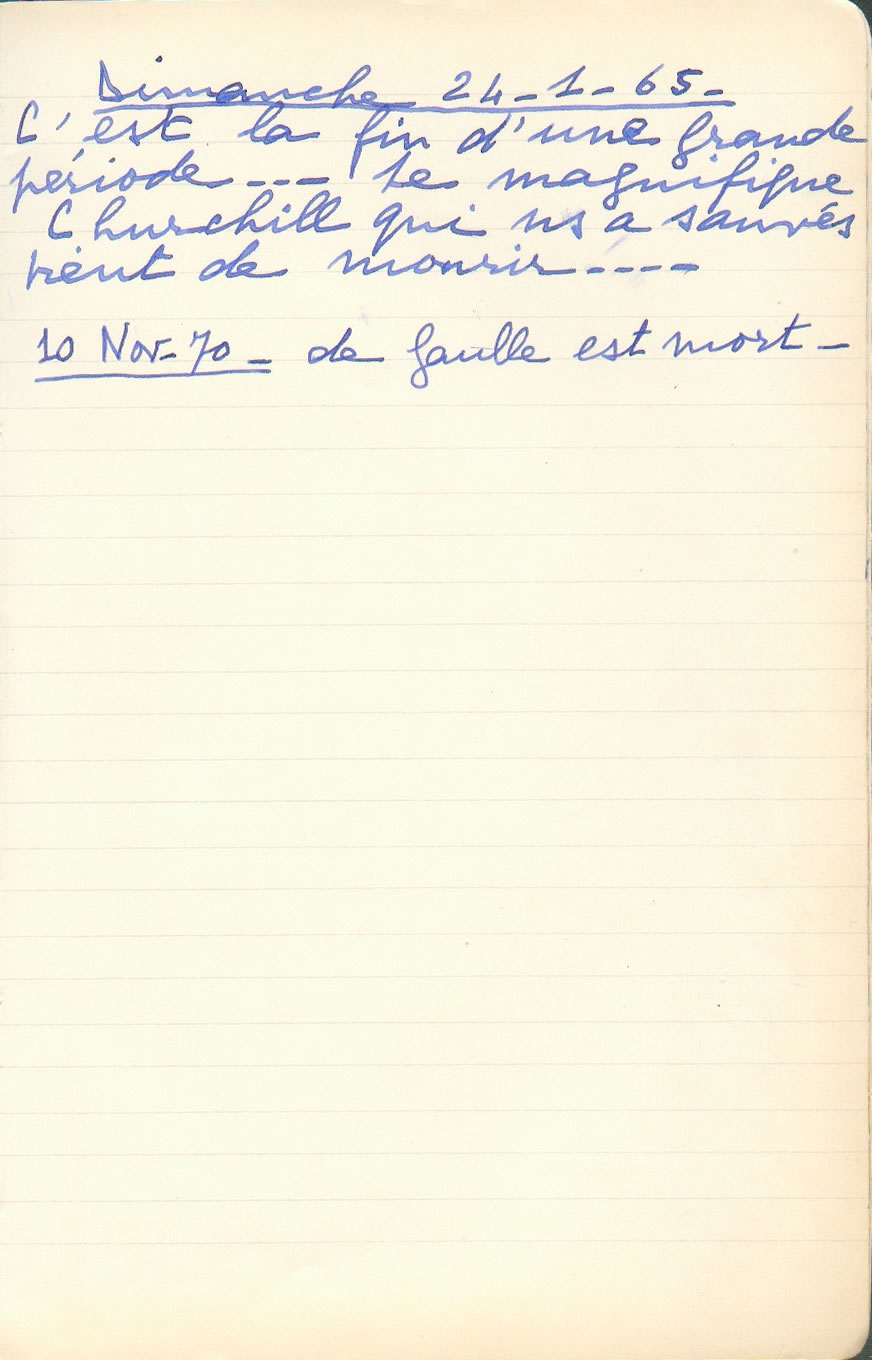 Dimanche 24-1-65-
C'est la fin d'une grande
période --- Le magnifique
Churchill qui ns a sauvés
vient de mourir----
10 Nov-70 - de Gaulle est mort -